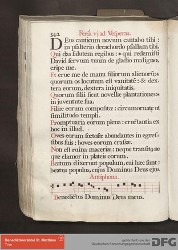 342 Feria vi ad Vesperas.
Deus canticum novum cantabo tibi :
in psalterio decachordo psallam tibi.
Qui das salutem regibus : qui redemisti
David servum tuum de gladio maligno,
eripe me.
Et erue me de manu filiorum alienorum,
quorum os locutum est vanitatem : & dex-
tera eorum, dextera iniquitatis.
Quorum filii sicut novellæ plantationes
in juventute sua.
Filiæ eorum compositæ : circumornatæ ut
similitudo templi.
Promptuaria eorum plena : eructantia ex
hoc in illud.
Oves eorum fœtosæ abundantes in egres-
sibus suis : boves eorum crassæ.
Non est ruina maceriæ : neque transitus : ne-
que clamor in plateis eorum.
Beatum dixerunt populum, cui hæc sunt :
beatus populus, cujus Dominus Deus ejus.
Antiphona.
Benedictus Dominus Deus meus.
DFG